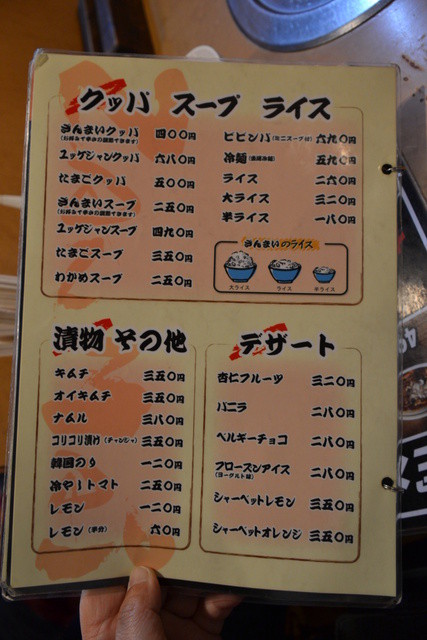 クッパ スープ ライス
さんまいクッパ 四〇〇円
(お好みで辛みの調整できます)
ユッゲジャンクッパ 六八〇円
たまごクッパ 五〇〇円
さんまいスープ 二五〇円
(お好みで辛みの調整できます)
ユッゲジャンスープ 四九〇円
たまごスープ 三五〇円
わかめスープ 二五〇円
ビビンバ(ミニスープ付) 六九〇円
冷麺 五九〇円
ライス 二六〇円
大ライス 三二〇円
半ライス 一八〇円
さんまいのライス
大ライス ライス 半ライス
漬物 その他
キムチ 三五〇円
オイキムチ 三五〇円
ナムル 三八〇円
コリコリ漬け(チャンジャ) 三五〇円
韓国のり 一二〇円
冷や〜トマト 二五〇円
レモン 一二〇円
レモン(半分) 六〇円
デザート
杏仁フルーツ 三二〇円
バニラ 二八〇円
ベルギーチョコ 二八〇円
フローズンアイス 二八〇円
(ヨーグルト味)
シャーベットレモン 三五〇円
シャーベットオレンジ 三五〇円